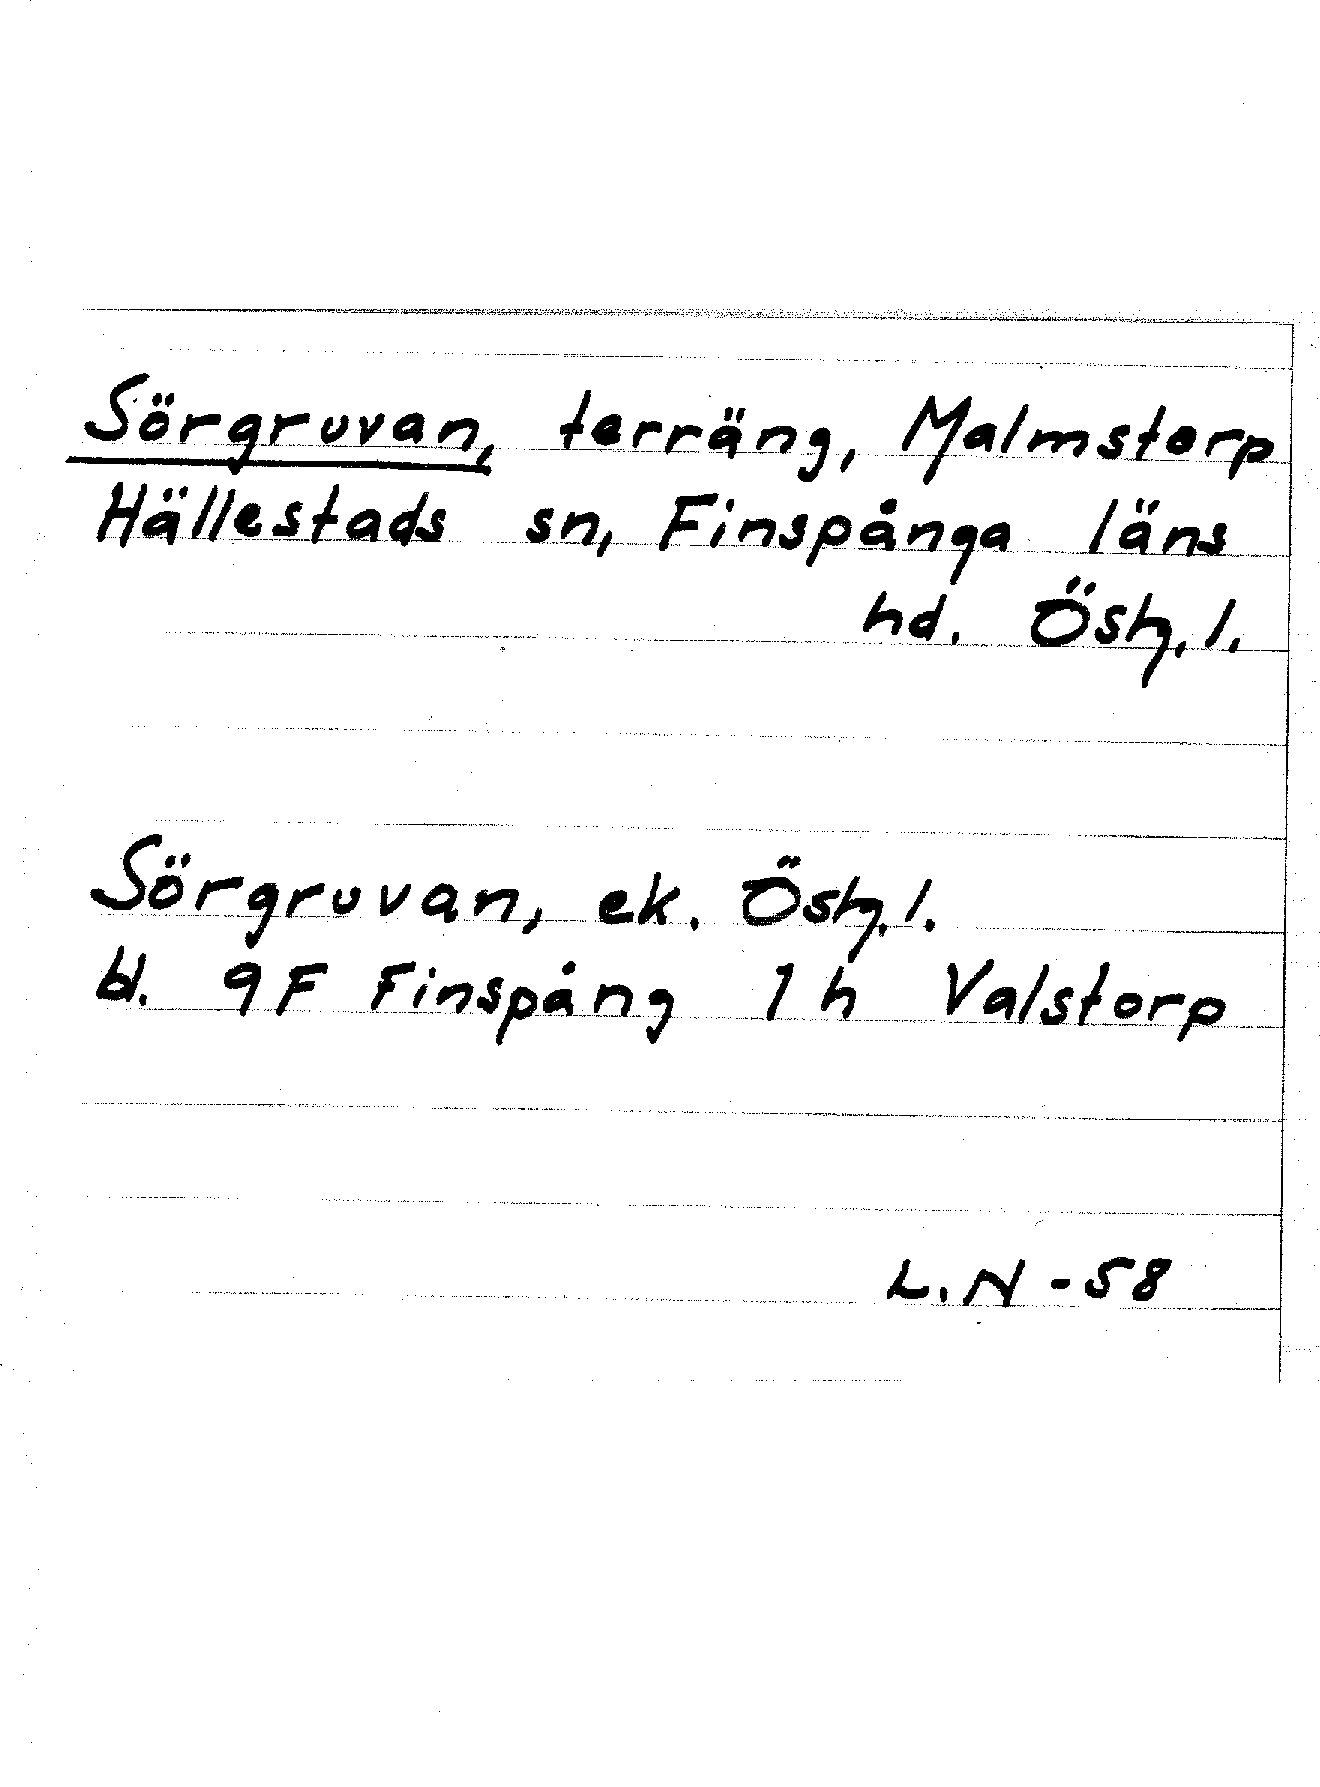 Sörgruvan, terräng, Malmstorp
Hällestads sn, Finspånga läns
hd. Östg. l.
Sörgruvan, ek. Östg. l.
bl. 9F Finspång 1 h Valstorp
L. N - 58